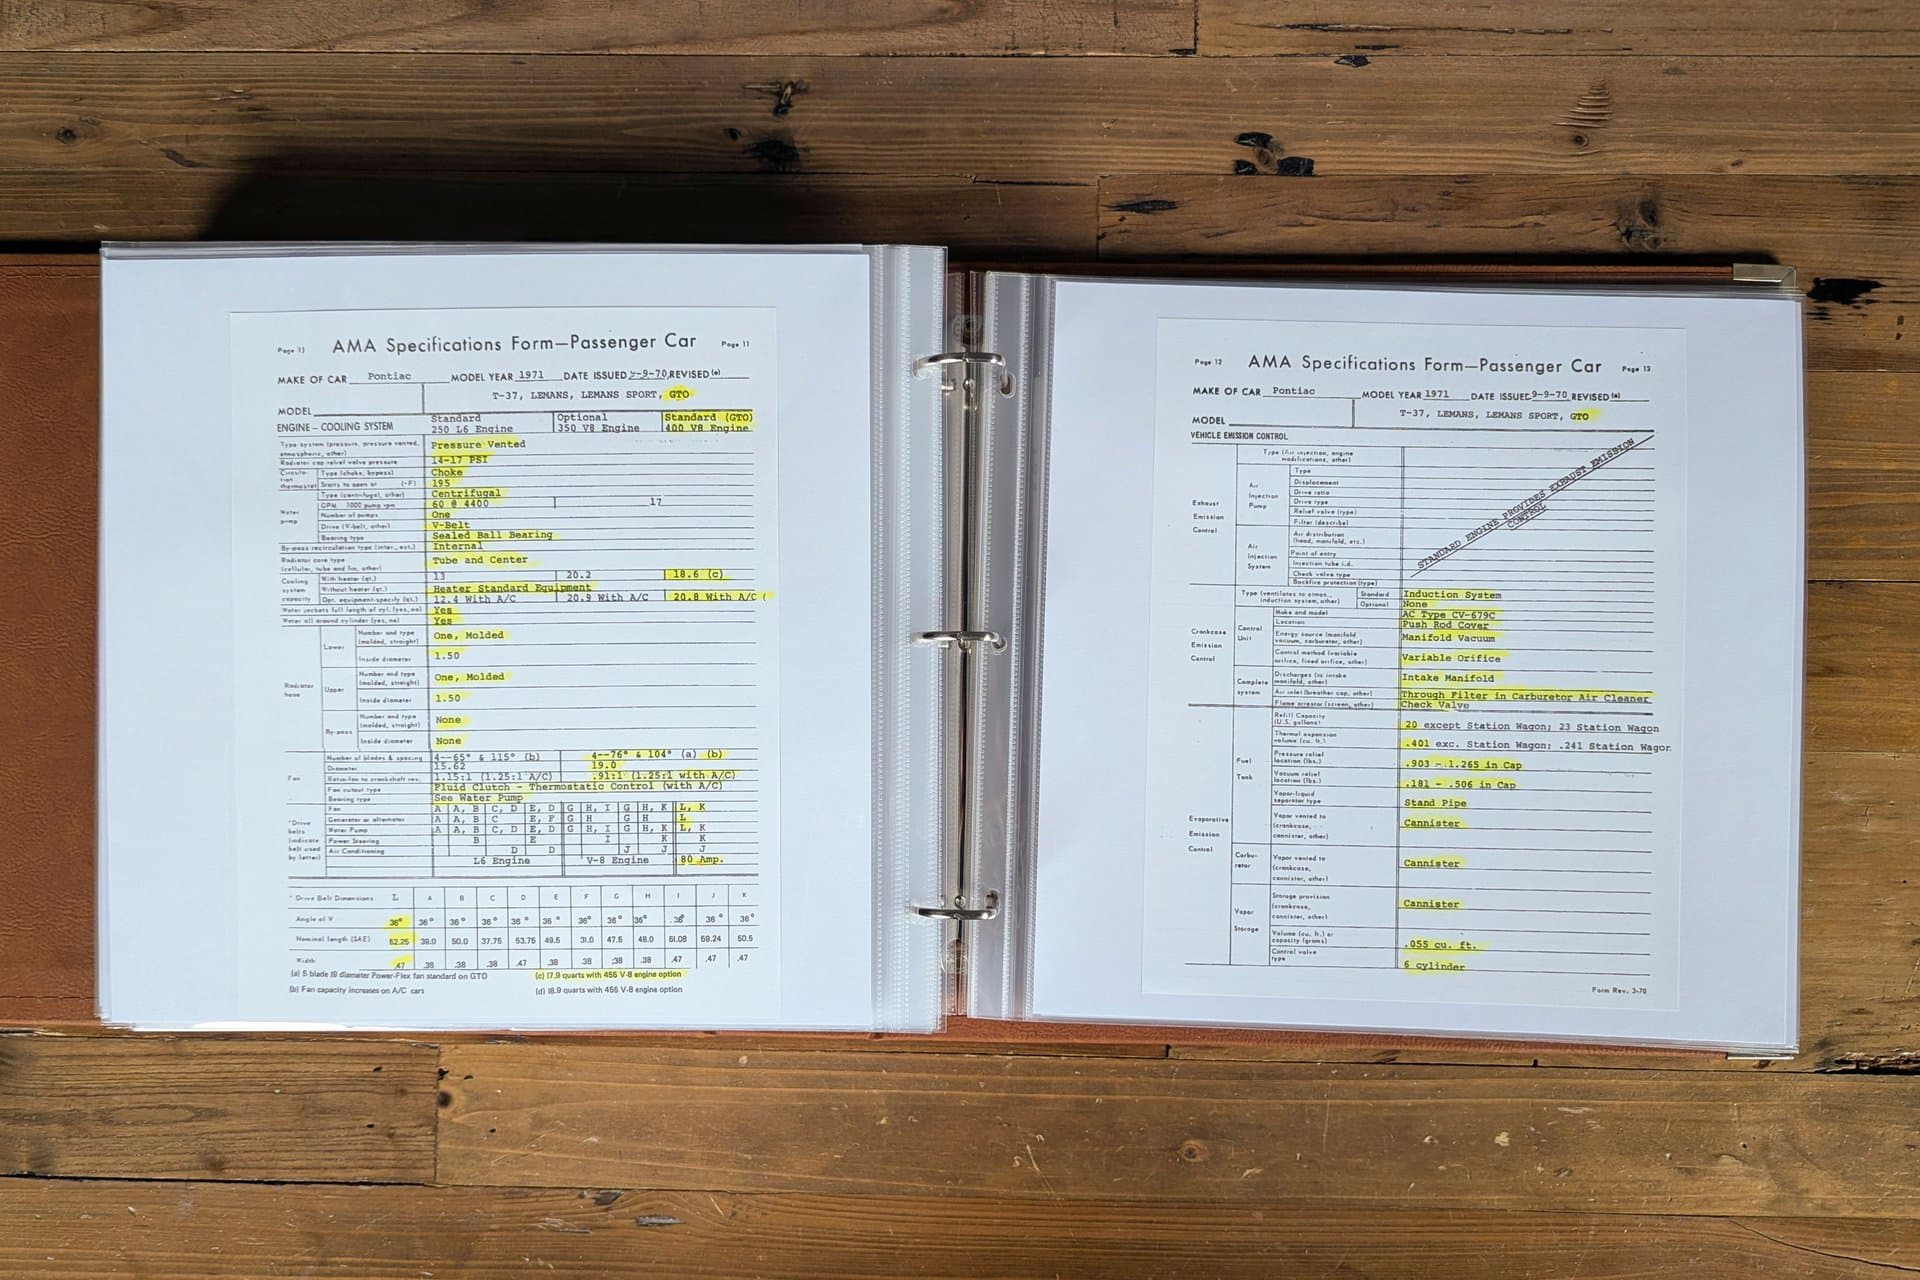 Page 11 AMA Specifications Form—Passenger Car Page 11
MAKE OF CAR Pontiac MODEL YEAR 1971 DATE ISSUED 9-9-70 REVISED (•)
T-37, LEMANS, LEMANS SPORT, GTO
MODEL
ENGINE – COOLING SYSTEM
Standard 250 L6 Engine
Optional 350 V8 Engine
Standard (GTO) 400 V8 Engine
Type system (pressure, pressure vented, atmospheric, other) Pressure Vented
Radiator cap relief valve pressure 14-17 PSI
Circulation thermostat
Type (choke, bypass) Choke
Starts to open at (°F) 195
Water pump
Type (centrifugal, other) Centrifugal
GPM 1000 pump rpm 60 @ 4400 17
Number of pumps One
Drive (V-belt, other) V-Belt
Bearing type Sealed Ball Bearing
By-pass recirculation type (inter., ext.) Internal
Radiator core type (cellular, tube and fin, other) Tube and Center
Cooling system capacity
With heater (qt.) 13 20.2 18.6 (c)
Without heater (qt.) Heater Standard Equipment
Opt. equipment-specify (qt.) 12.4 With A/C 20.9 With A/C 20.8 With A/C (
Water jackets full length of cyl. (yes, no) Yes
Water all around cylinder (yes, no) Yes
Radiator hose
Lower
Number and type (molded, straight) One, Molded
Inside diameter 1.50
Upper
Number and type (molded, straight) One, Molded
Inside diameter 1.50
By-pass
Number and type (molded, straight) None
Inside diameter None
Fan
Number of blades & spacing 4--65° & 115° (b) 4--76° & 104° (a) (b)
Diameter 15.62 19.0
Ratio-fan to crankshaft rev. 1.15:1 (1.25:1 A/C) .91:1 (1.25:1 with A/C)
Fan cutout type Fluid Clutch - Thermostatic Control (with A/C)
Bearing type See Water Pump
*Drive belts (indicate belt used by letter)
Fan A A, B C, D E, D G H, I G H, K L, K
Generator or alternator A A, B C E, F G H G H L
Water Pump A A, B C, D E, D G H, I G H, K L, K
Power Steering B E I K K
Air Conditioning D D J J J
L6 Engine V-8 Engine 80 Amp.
* Drive Belt Dimensions L A B C D E F G H I J K
Angle of V 36° 36° 36° 36° 36° 36° 36° 36° 36° .36° 36° 36°
Nominal length (SAE) 52.25 39.0 50.0 37.75 53.75 49.5 31.0 47.5 48.0 51.08 59.24 50.5
Width .47 .38 .38 .38 .38 .38 .38 .38 .38 .47 .47 .47
(a) 5 blade 19 diameter Power-Flex fan standard on GTO (c) 17.9 quarts with 455 V-8 engine option
(b) Fan capacity increases on A/C cars (d) 18.9 quarts with 455 V-8 engine option
Page 12 AMA Specifications Form—Passenger Car Page 12
MAKE OF CAR Pontiac MODEL YEAR 1971 DATE ISSUED 9-9-70 REVISED (•)
T-37, LEMANS, LEMANS SPORT, GTO
MODEL
VEHICLE EMISSION CONTROL
Exhaust Emission Control
Type (Air injection, engine modifications, other)
Air Injection Pump
Type
Displacement
Drive ratio
Drive type
Relief valve (type)
Filter (describe)
Air Injection System
Air distribution (head, manifold, etc.)
Point of entry
Injection tube i.d.
Check valve type
Backfire protection (type)
STANDARD ENGINE PROVIDES EXHAUST EMISSION
CONTROL
Crankcase Emission Control
Type (ventilates to atmos., induction system, other)
Standard Induction System
Optional None
Control Unit
Make and model AC Type CV-679C
Location Push Rod Cover
Energy source (manifold vacuum, carburetor, other) Manifold Vacuum
Control method (variable orifice, fixed orifice, other) Variable Orifice
Complete system
Discharges (to intake manifold, other) Intake Manifold
Air inlet (breather cap, other) Through Filter in Carburetor Air Cleaner
Flame arrestor (screen, other) Check Valve
Evaporative Emission Control
Fuel Tank
Refill Capacity (U.S. gallons) 20 except Station Wagon; 23 Station Wagon
Thermal expansion volume (cu. ft.) .401 exc. Station Wagon; .241 Station Wagon
Pressure relief location (lbs.) .903 - 1.265 in Cap
Vacuum relief location (lbs.) .181 - .506 in Cap
Vapor-liquid separator type Stand Pipe
Vapor vented to (crankcase, cannister, other) Cannister
Carburetor
Vapor vented to (crankcase, cannister, other) Cannister
Vapor Storage
Storage provision (crankcase, cannister, other) Cannister
Volume (cu. ft.) or capacity (grams) .055 cu. ft.
Control valve type 6 cylinder
Form Rev. 3-70